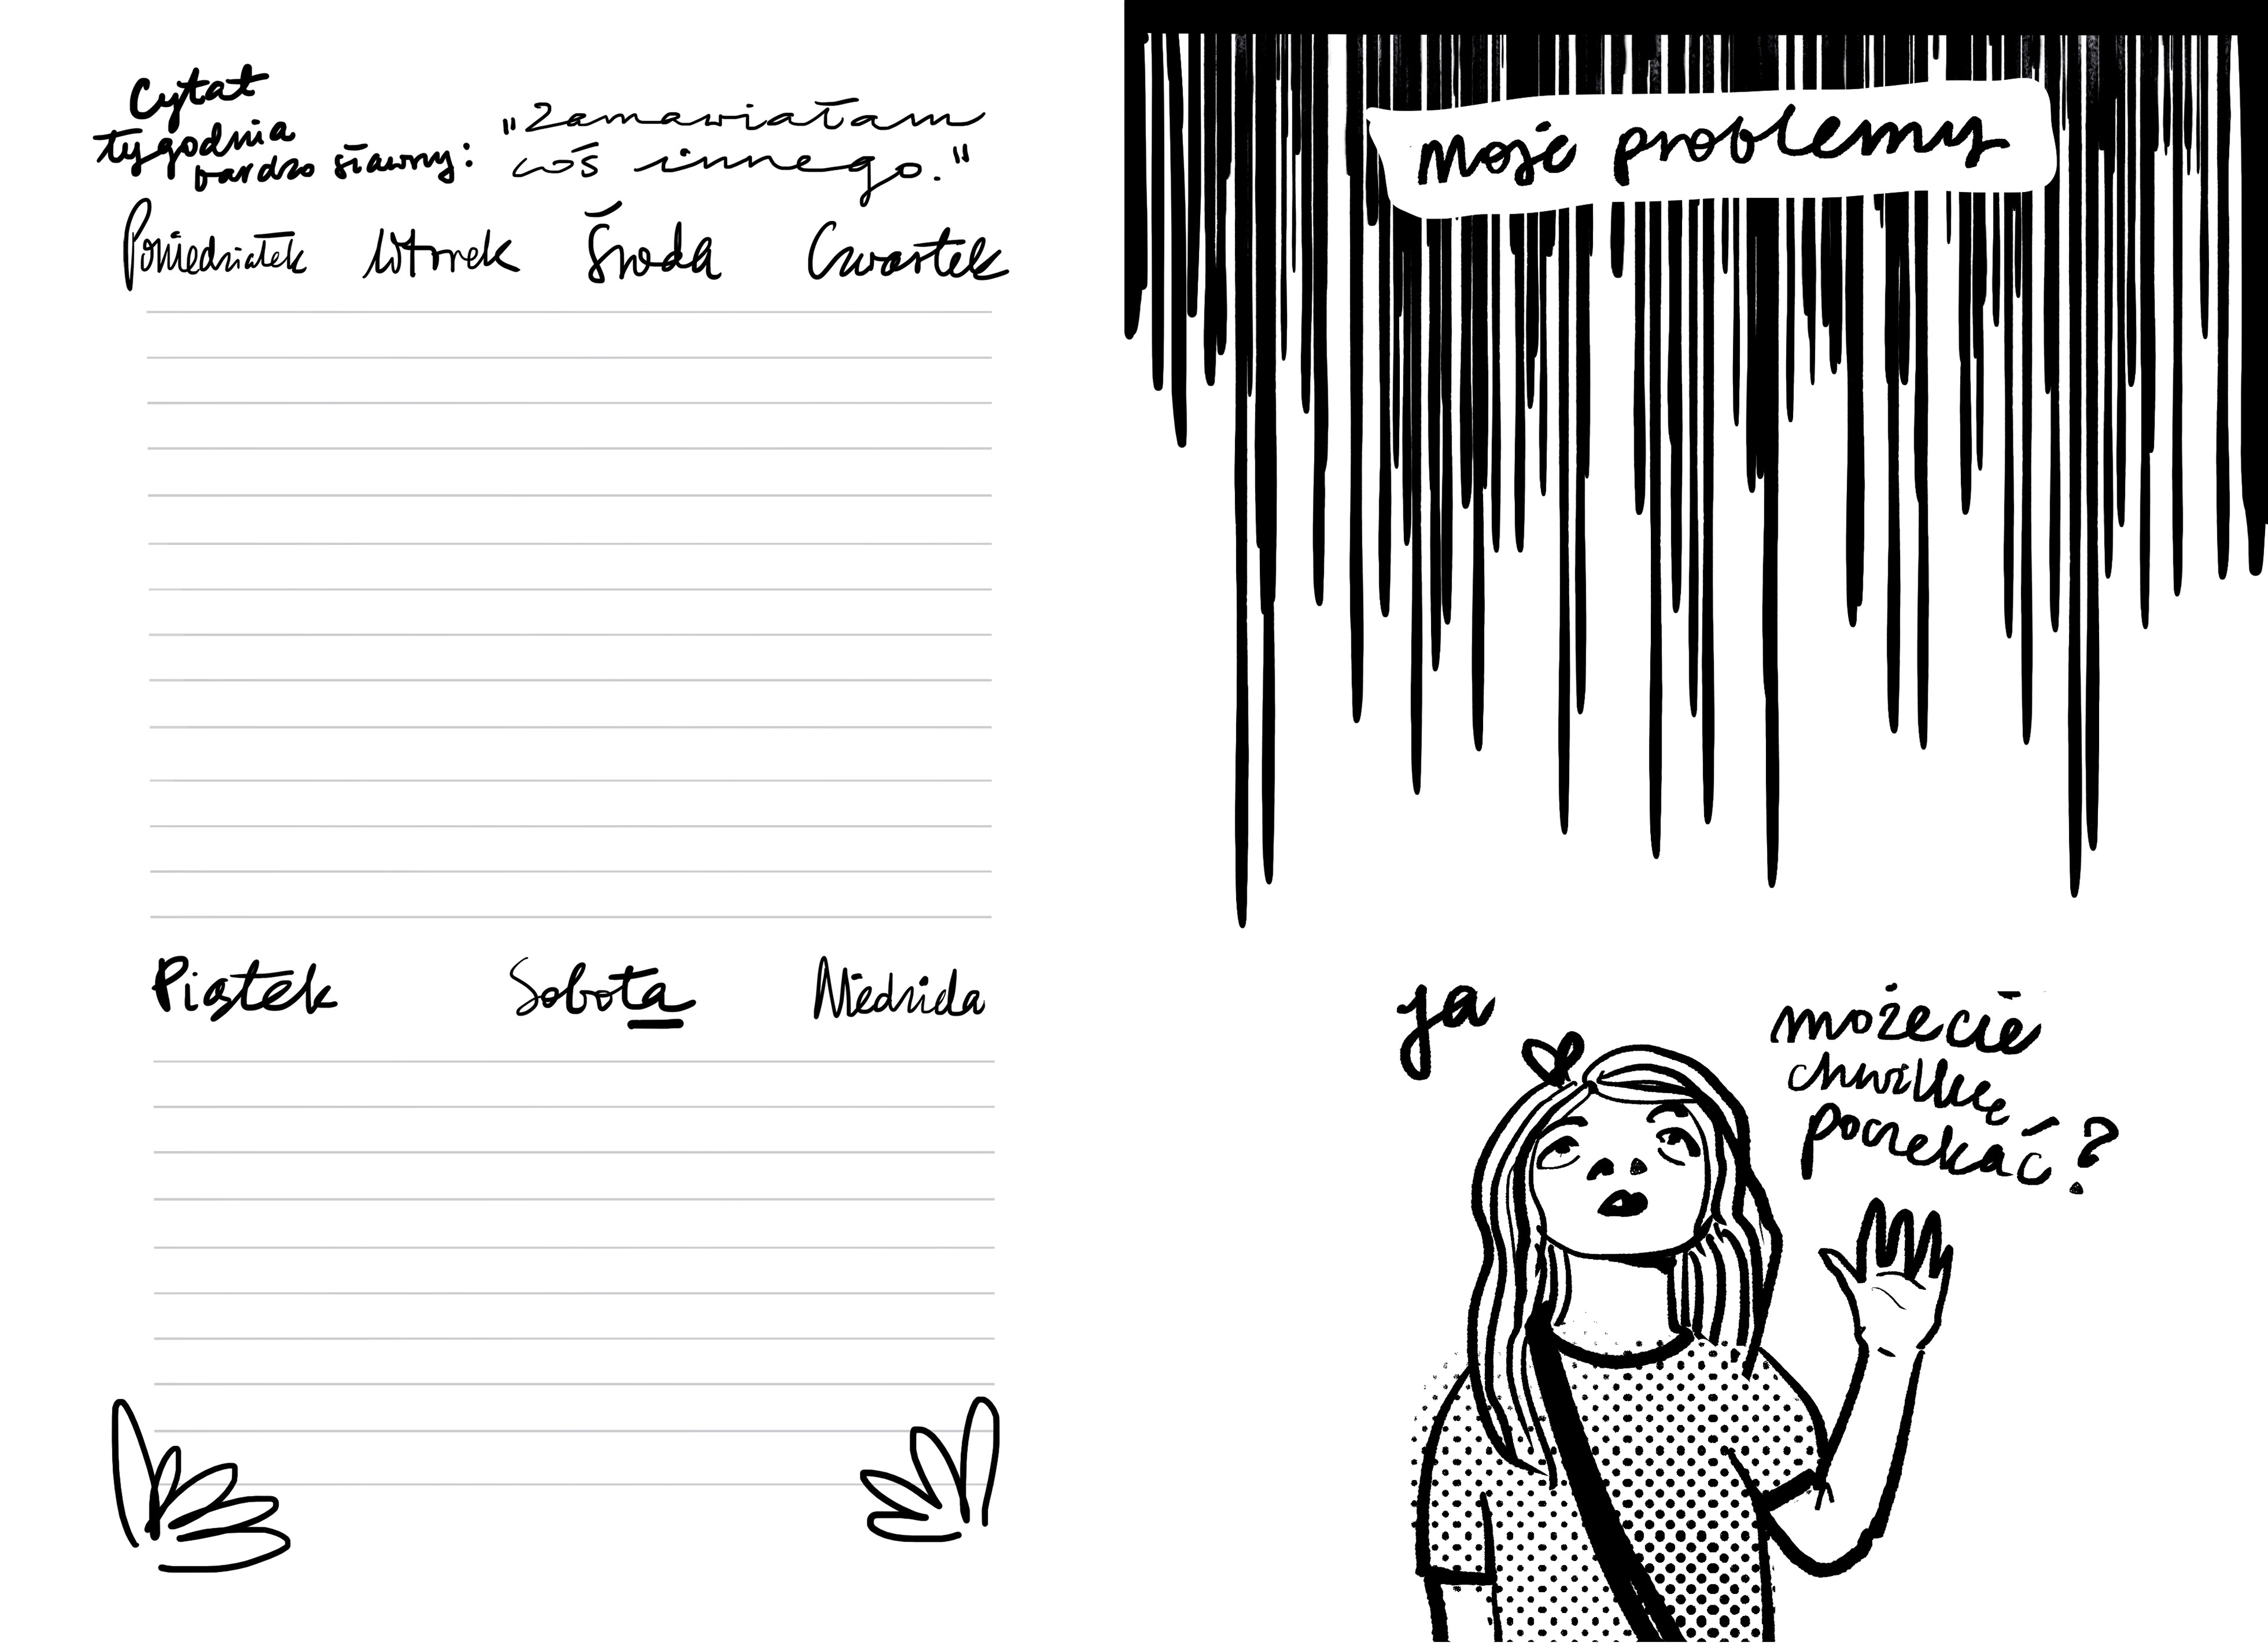 Cytat
tygodnia
bardzo sławny:
"Zamawiałam
coś innego."
Poniedziałek Wtorek Środa Czwartek
Piątek Sobota Niedziela
moje problemy
ja
możecie
chwilkę
poczekać?